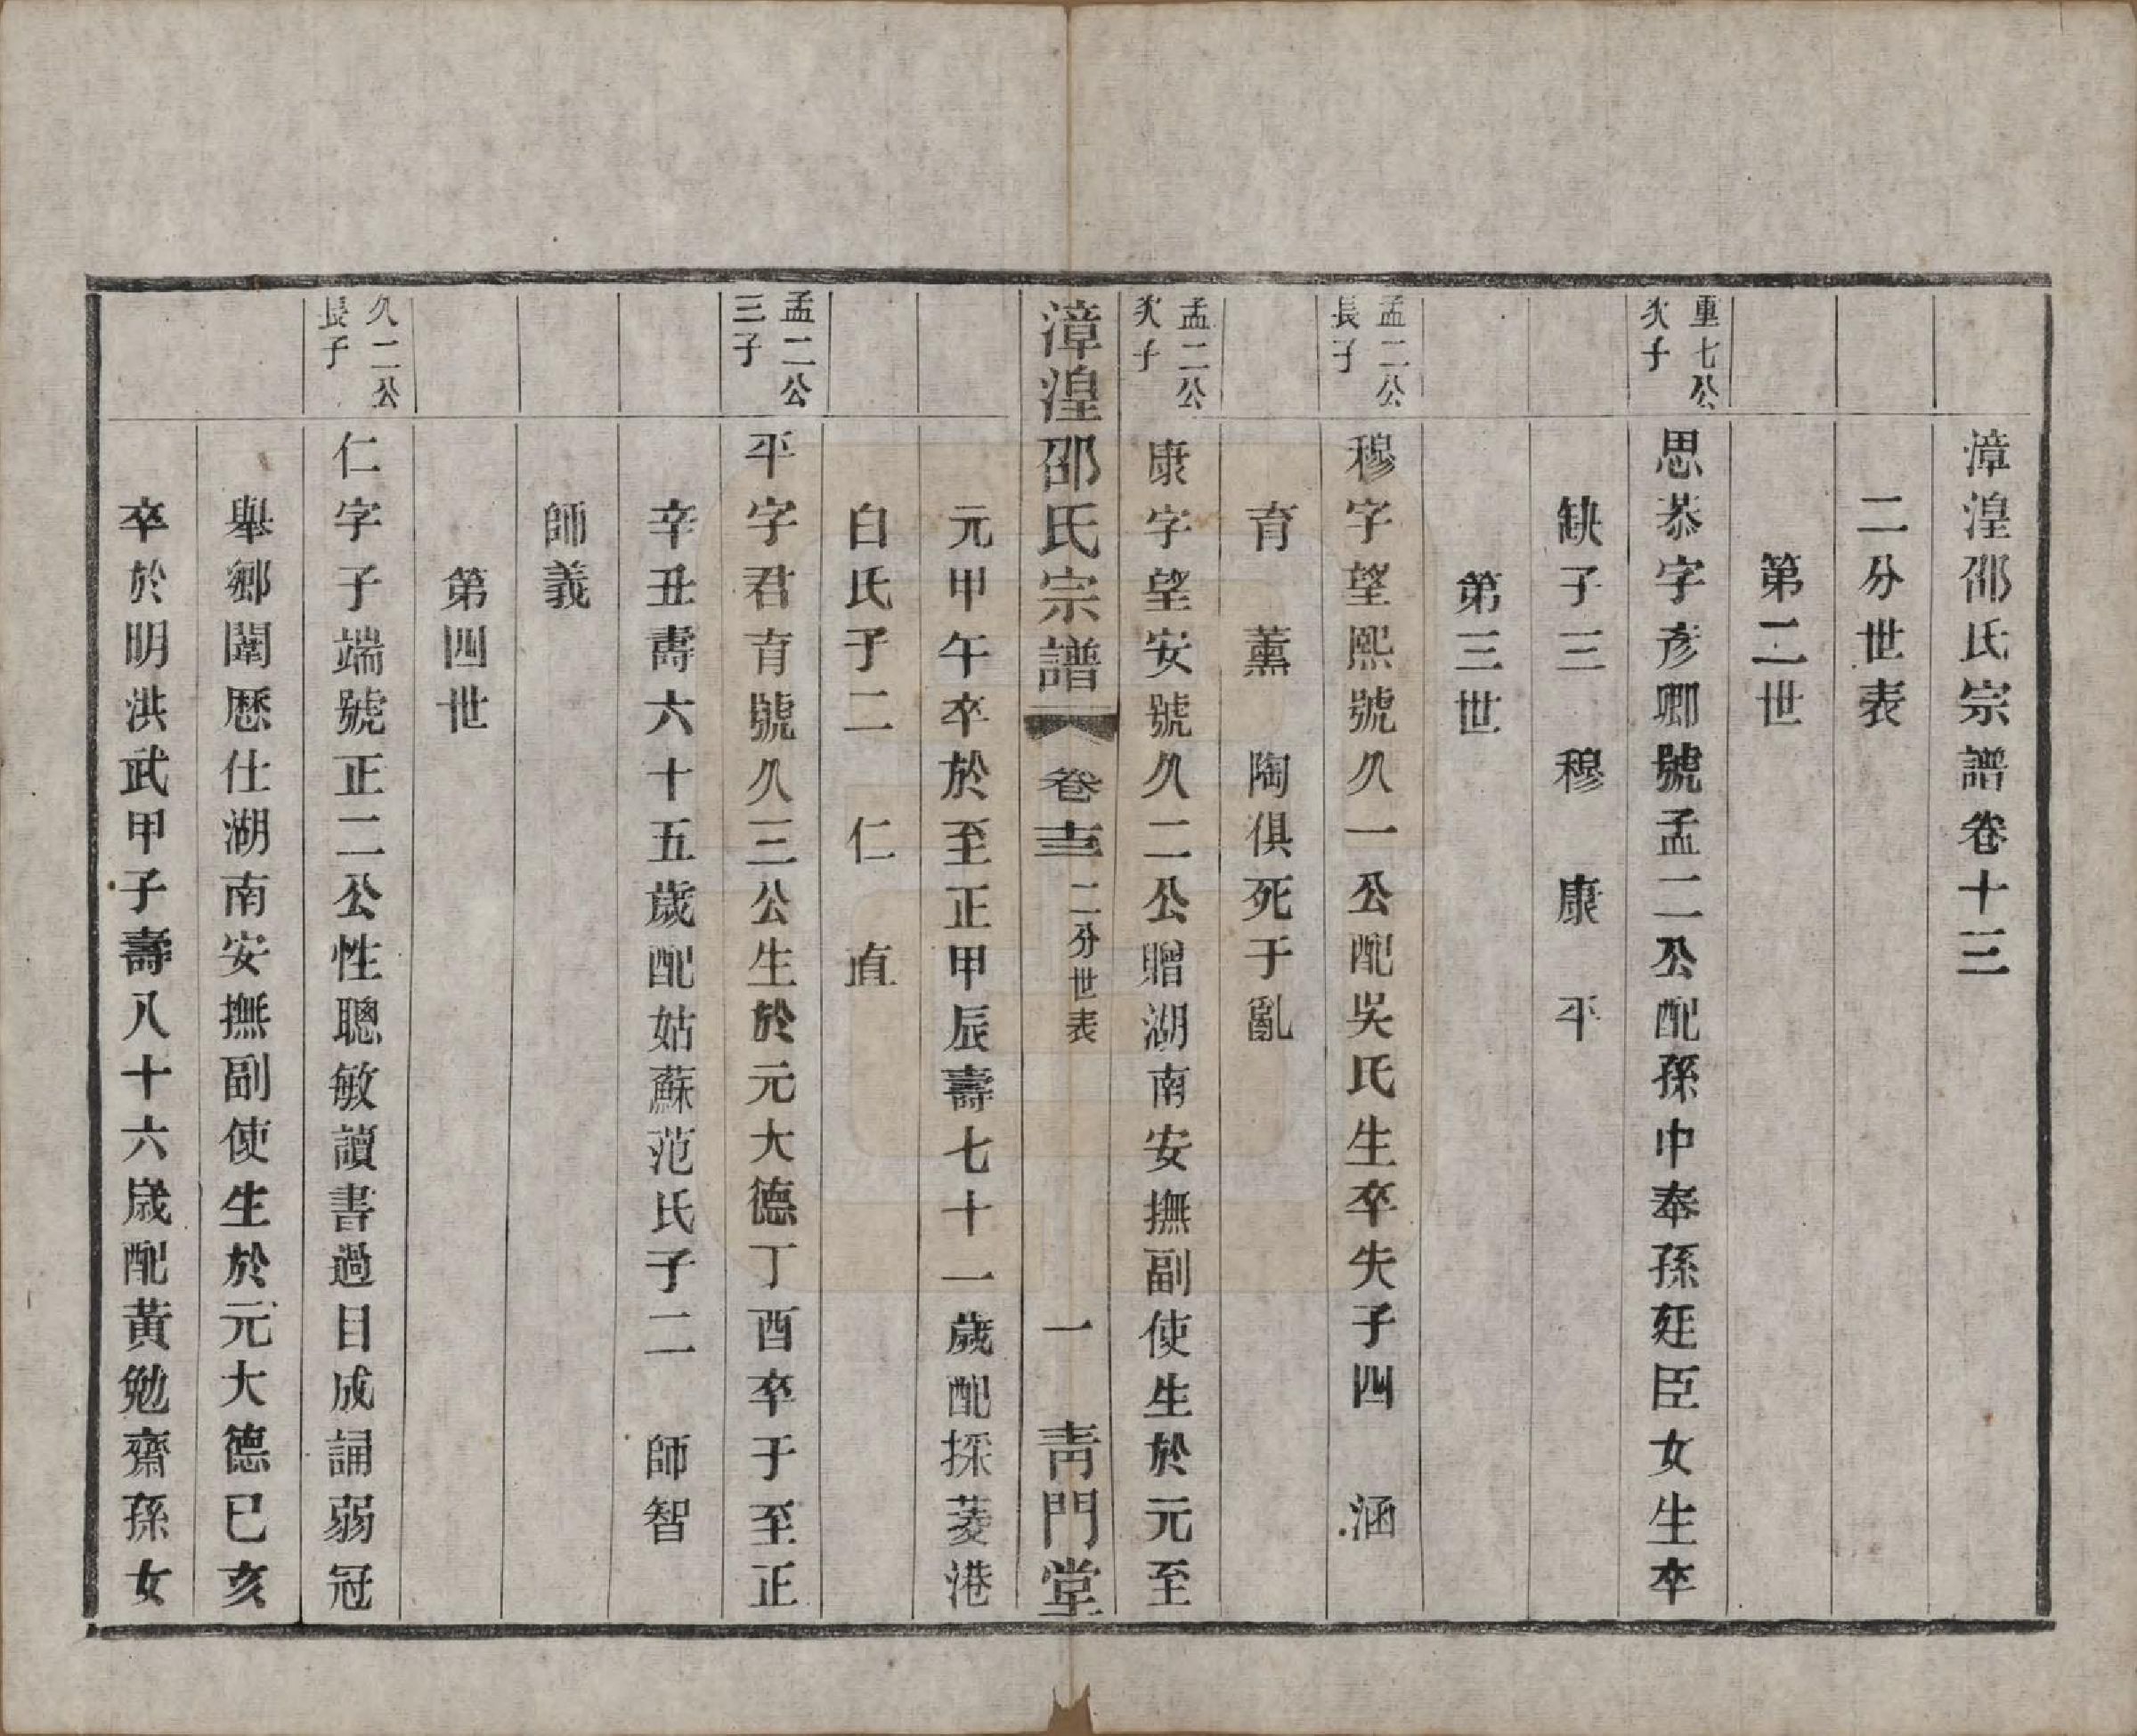 漳湟邵氏宗譜卷十三
二分世表
第二世
重七公
次子
思恭字彥卿號孟二公配孫中奉孫廷臣女生卒
缺子三　穆　康　平
第三世
孟二公
長子
穆字望熙號久一公配吳氏生卒失子四　涵
育　薰　陶俱死于亂
孟二公
次子
康字望安號久二公贈湖南安撫副使生於元至
漳湟邵氏宗譜　卷十三　二分世表　一　青門堂
元甲午卒於至正甲辰壽七十一歲配採菱港
白氏子二　仁　直
孟二公
三子
平字君育號久三公生於元大德丁酉卒于至正
辛丑壽六十五歲配姑蘇范氏子二　師智
師義
第四世
久二公
長子
仁字子端號正二公性聰敏讀書過目成誦弱冠
舉鄉闈歷仕湖南安撫副使生於元大德已亥
卒於明洪武甲子壽八十六歲配黃勉齋孫女